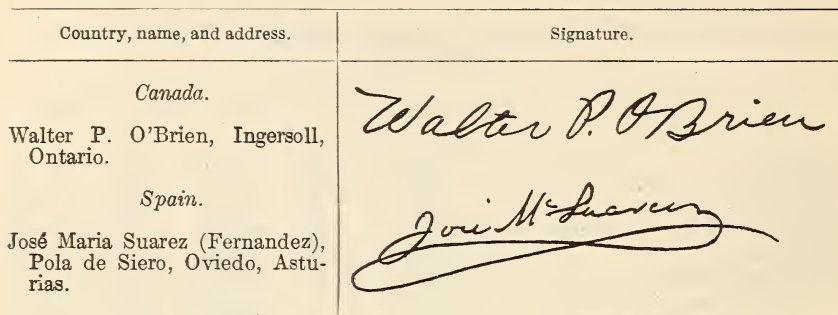 Country, name, and address.
Signature.
Canada.
Walter P. O'Brien, Ingersoll,
Ontario.
Walter P. O'Brien
Spain.
José Maria Suarez (Fernandez),
Pola de Siero, Oviedo, Astu-
rias.
José Mª Suarez